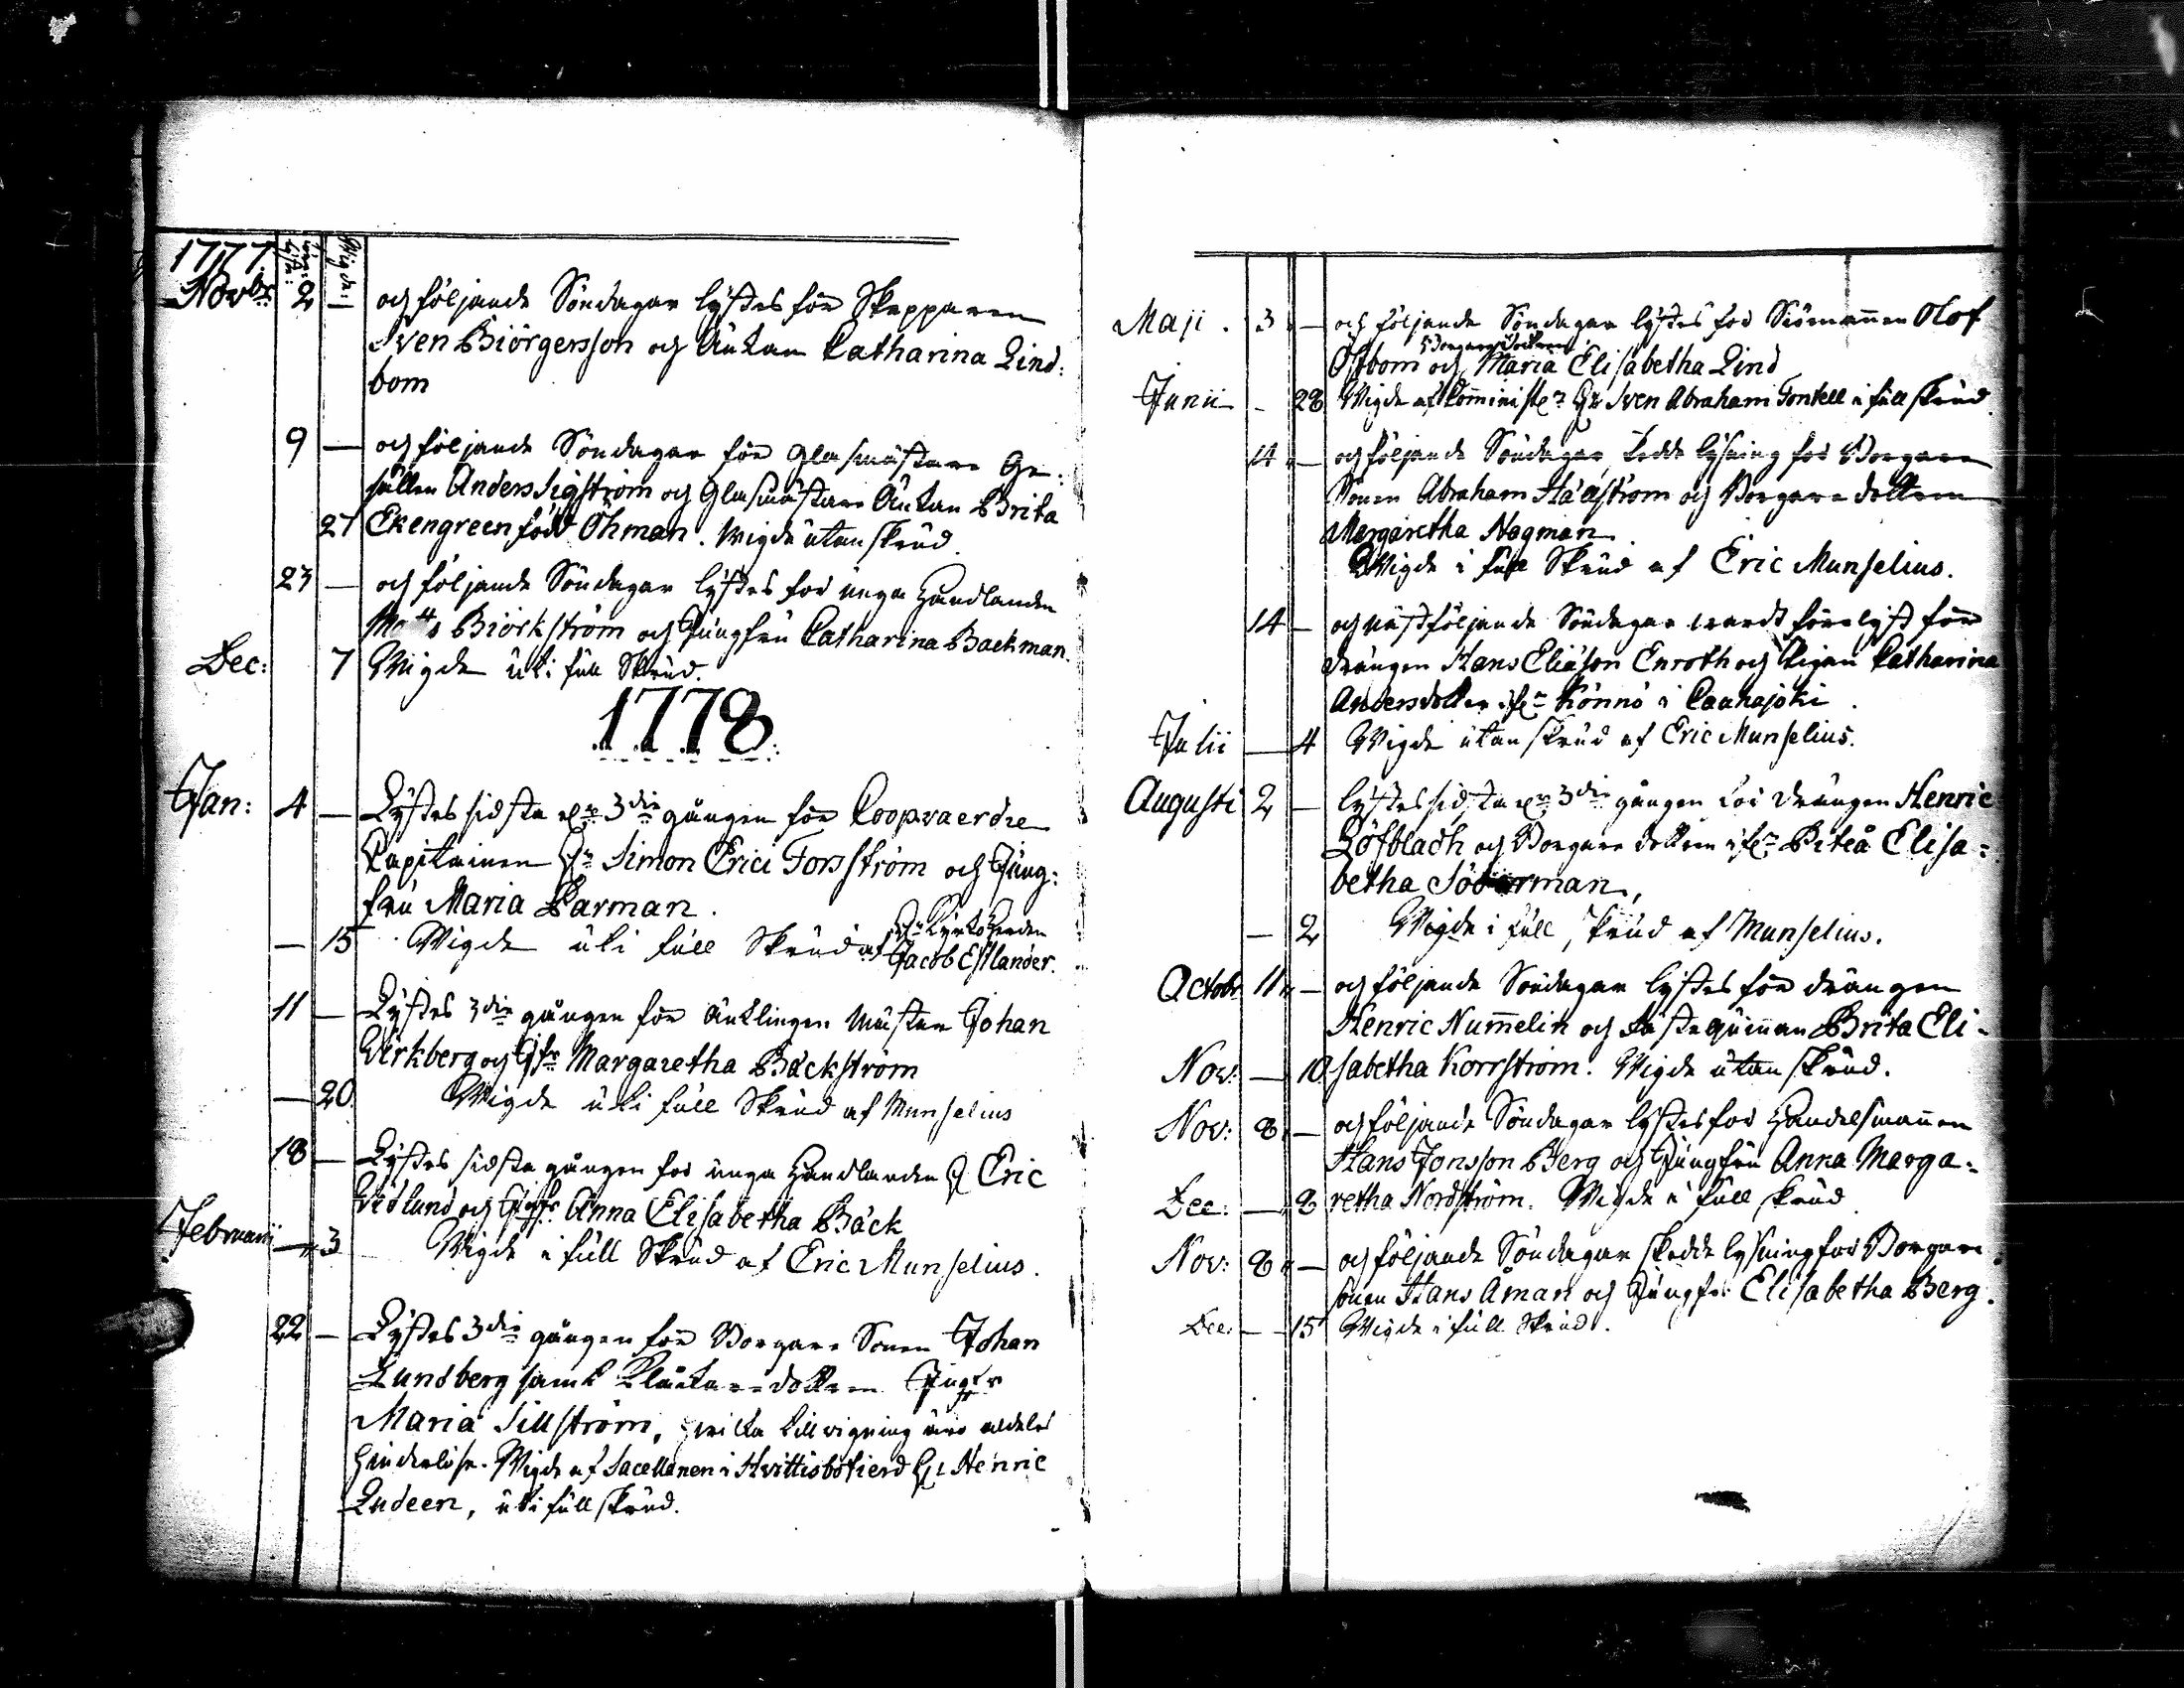 1777. Lysn: Vigde:
Novbr 2 — och följande Söndagar lystes för Skepparen
Sven Biörgersson och Änkan Catharina Lind:
bom
9 — och följande Söndagar för Glasmästare Ge:
sällen Anders Sigström och Glasmästare Änkan Brita
27 Ekengreen född Öhman. Wigde utan skrud.
23 — och följande Söndagar lystes för unga Handlanden
Matts Biörkström och Jungfru Catharina Backman.
Dec: 7 Wigde uti full Skrud.
1778.
Jan: 4 — Lystes sidsta och 3die gången för Coopvaerdie
Capitainen Hr Simon Erici Forsström och Jung:
fru Maria Parman.
— 15 Wigde uti full Skrud af Hr KyrkoHerden
Jacob Estlander.
11 — Lystes 3die gången för Änklingen Mästar Johan
Wirkberg och Jfr Margaretha Bäckström
— 20. Wigde uti full Skrud af Munselius
18 — Lystes sidsta gången för unga Handlanden H Eric
Widlund och Jgfr Anna Elisabetha Bäck
Februarii — 3 Wigde i full Skrud af Eric Munselius.
22 — Lystes 3die gången för Borgare Sonen Johan
Lundberg samt Klåckaredottren Jugfr
Maria Sillström, hvilka till vigning äro aldeles
hinderlöse. Wigde af Sacellanen i Hvittisbofierd Hr Henric
Ludeen, uti full skrud.
Maji. 3 — och följande Söndagar lystes för Siömannen Olof
Borgaredottren
Ostbom och Maria Elisabetha Lind
Junii - 28 Wigde af Comministern Hr Sven Abraham Fontell i full skrud.
14 — och följande Söndagar skedde lysning för Borgare
Sonen Abraham Haaström och Borgaredottren
Margaretha Nagman.
Wigde i full Skrud af Eric Munselius.
14 — och näst följande Söndagar wardt förelyst för
drängen Hans Eliäson Enroth och Pigan Catharina
Andersdotter ifrn Könnö i Paahajoki.
Julii — 4 Wigde utan skrud af Eric Munselius.
Augusti 2 — lystes sidsta och 3die gången för drängen Henric
Löfbladh och Borgare dottren ifrn Piteå Elisa:
betha Söderman,
— 2 Wigde i full skrud af Munselius.
Octobr 11 — och följande Söndagar lystes för drängen
Henric Nummelin och fästeqwinnan Brita Eli-
Nov: — 10 sabetha Korsström. Wigde utan skrud.
Nov: 8 — och följande Söndagar lystes för Handelsmannen
Hans Jonsson Berg och Jungfru Anna Marga:
Dec: — 8 retha Nordström. Wigde i full skrud
Nov: 8 — och följande Söndagar skedde lysning för Borgare
sonen Hans Åman och Jungfr: Elisabetha Berg.
Dec: — 15 Wigde i full Skrud.